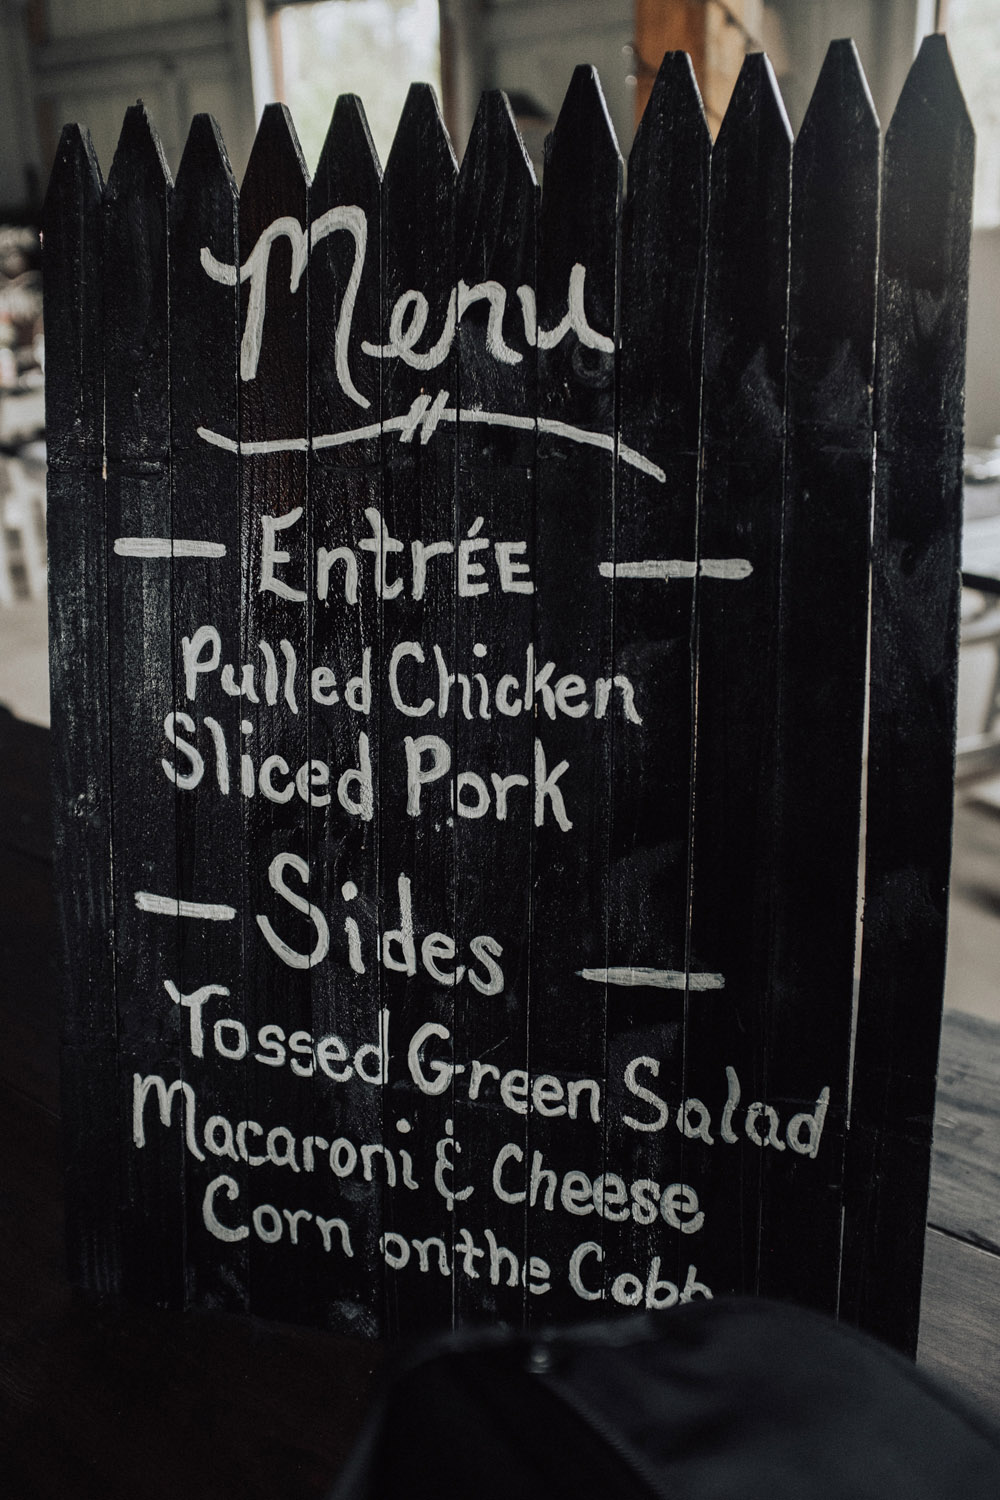 Menu
EntrÉE
Pulled Chicken
Sliced Pork
Sides
Tossed Green Salad
Macaroni & Cheese
Corn on the Cobb